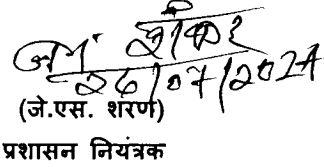 26/07/2024
(जे.एस. शरण)
प्रशासन नियंत्रक